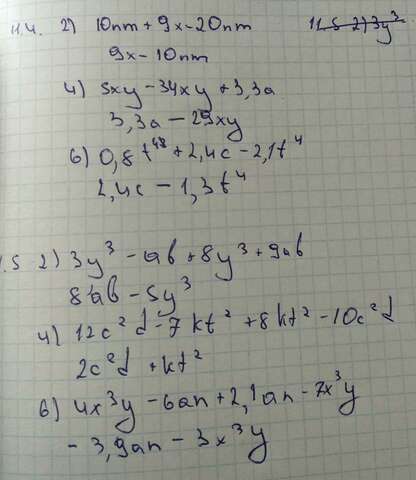 11.4. 2) 10nm + 9x - 20nm
11.5 2) 3y³
9x - 10nm
4) 5xy - 34xy + 3,3a
3,3a - 29xy
6) 0,8t⁴ + 2,4c - 2,1t⁴
2,4c - 1,3t⁴
1.5 2) 3y³ - ab + 8y³ + 9ab
8ab - 5y³
4) 12c²d - 7kt² + 8kt² - 10c²d
2c²d + kt²
6) 4x³y - 6an + 2,1an - 7x³y
- 3,9an - 3x³y